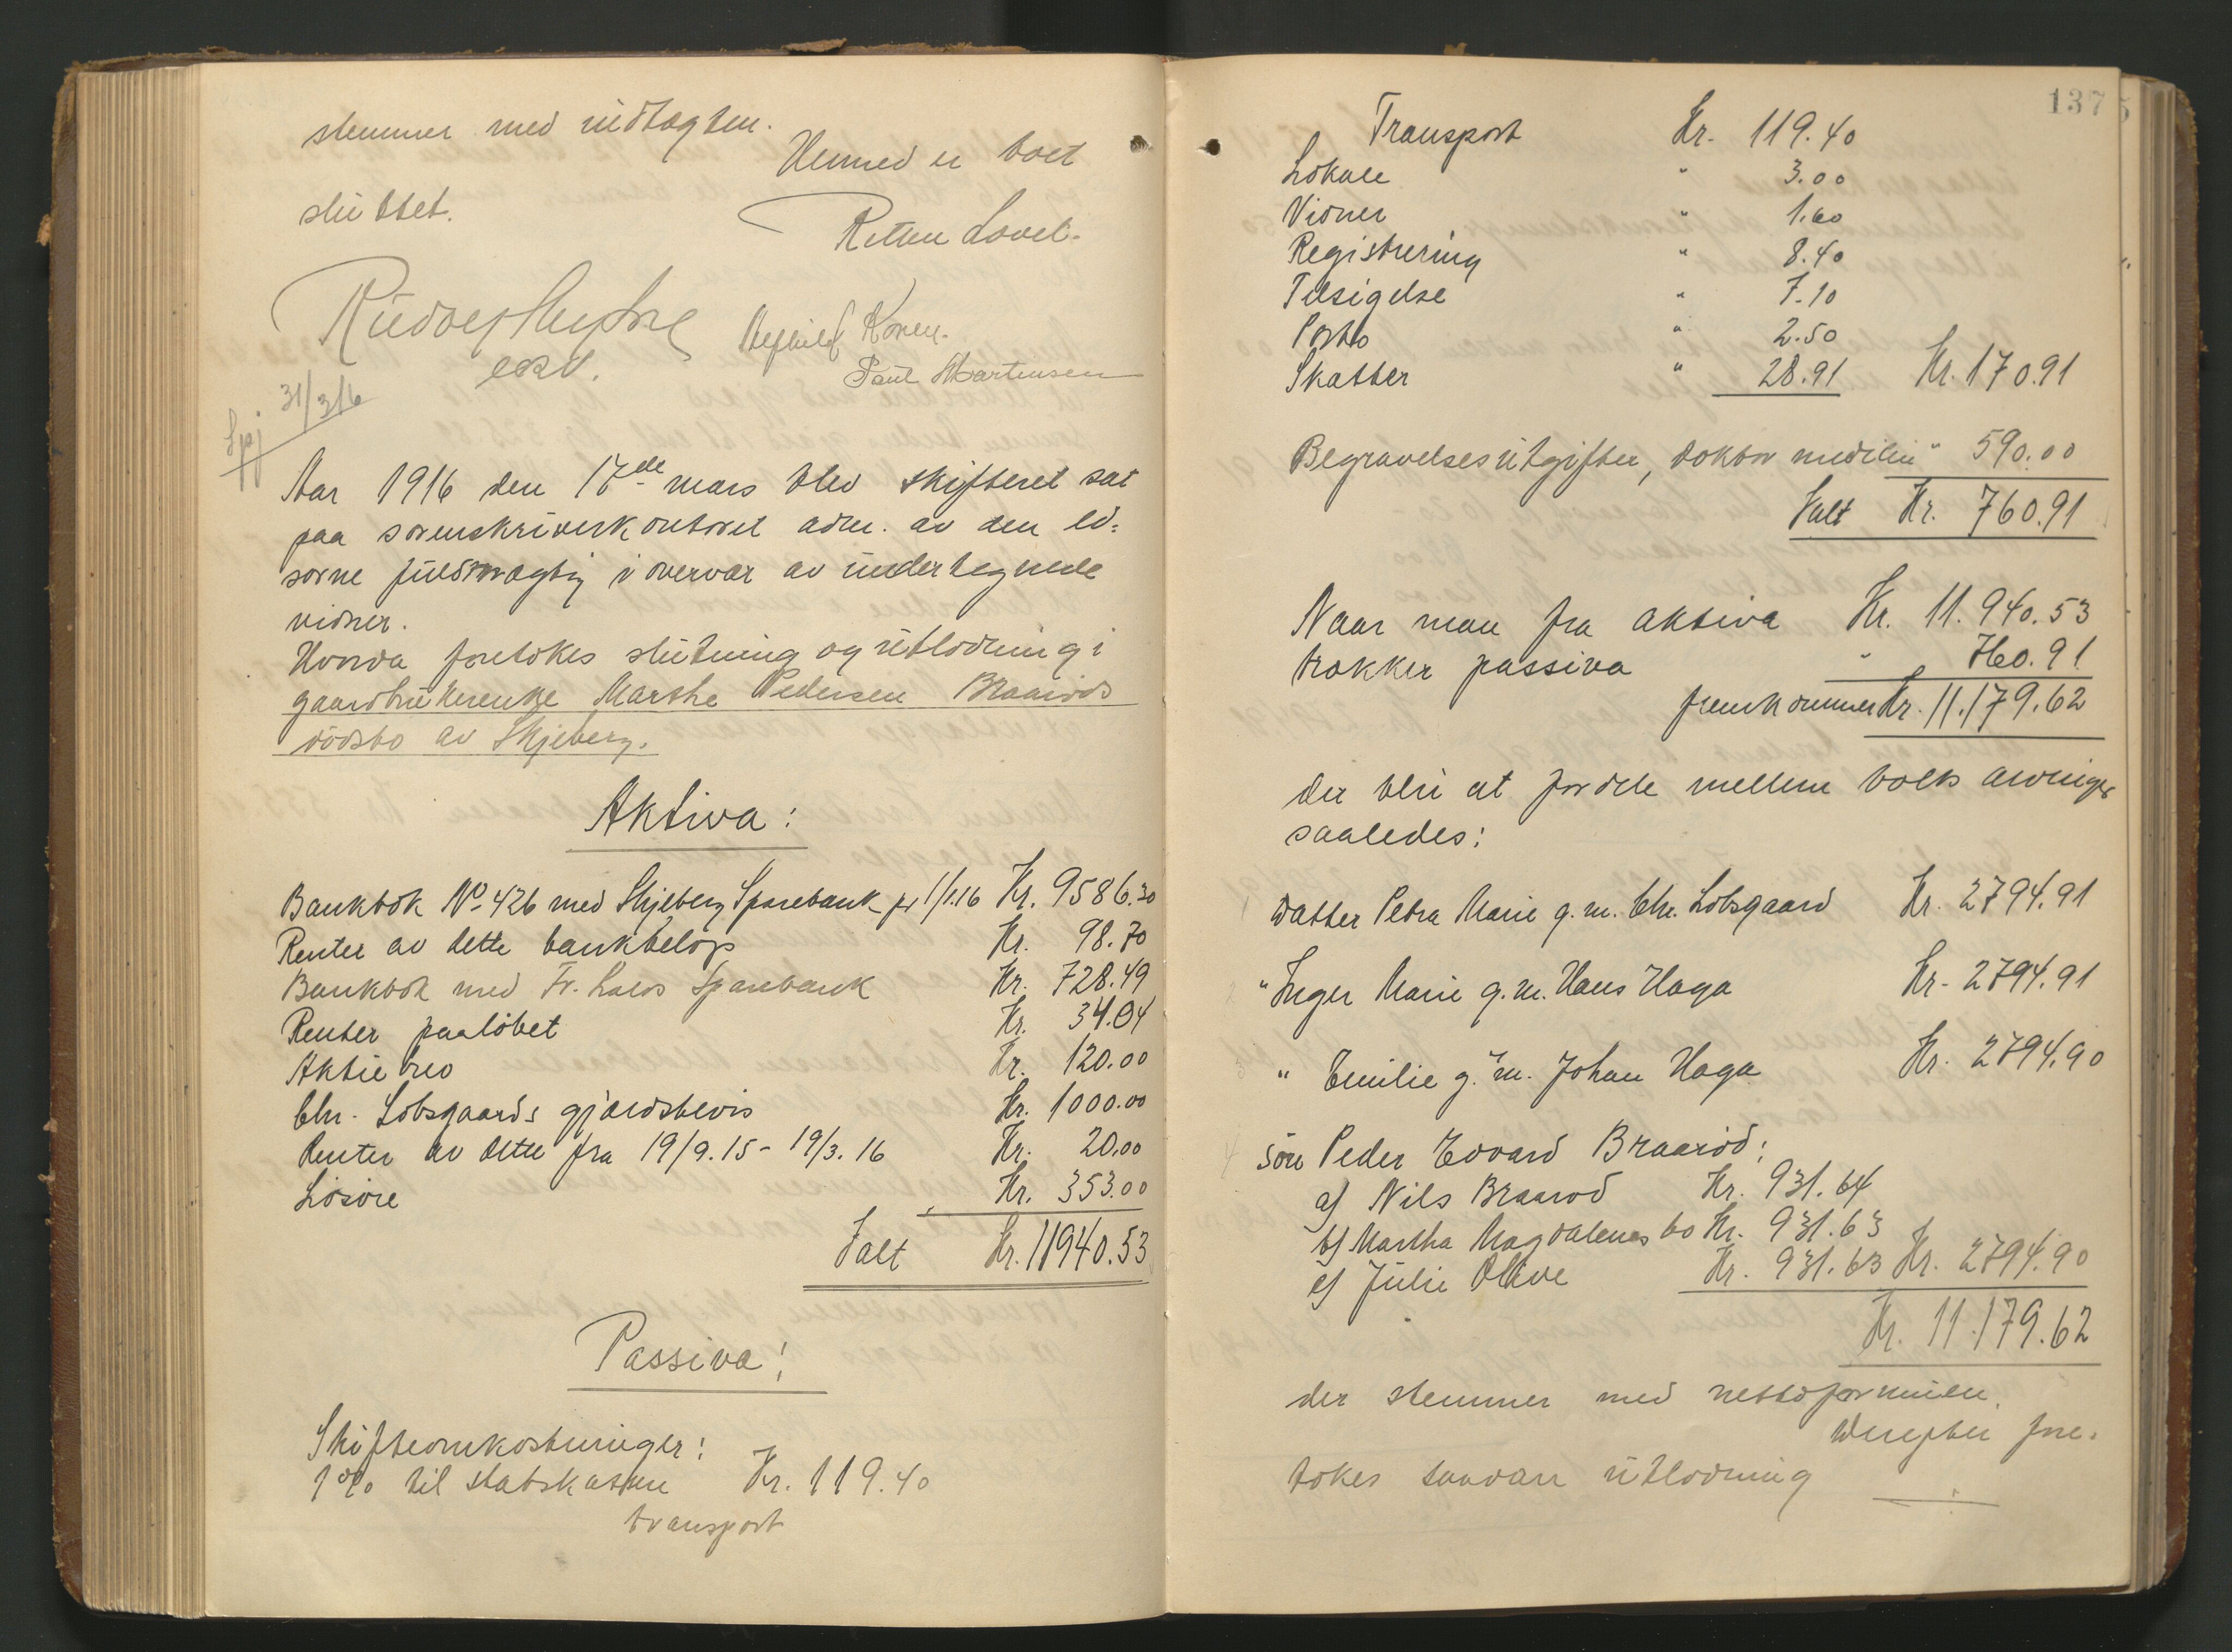 stemmer med indtægten.
Hermed er boet
sluttet.
Retten hævet.
Koren.
Paul Martensen
31/3 16
Aar 1916 den 17de mars blev skifteret sat
paa sorenskriverkontoret adm. av den ed=
sorne fuldmægtig i overvær av undertegnede
vidner.
Hvorda foretokes slutning og utlodning i
gaardbrukerenke Marthe Pedersen Braarøds
dødsbo av Skjeberg.
Aktiva:
Bankbok No 426 med Skjeberg Sparebank pr 1/1.16 Kr. 9586.30
Renter av dette bankbeløp Kr. 98.70
Bankbok med Fr.halds Sparebank Kr. 728.49
Renter paaløbet Kr. 34.04
Aktiebrev Kr. 120.00
Chr. Lobsgaards gjældsbevis Kr. 1000.00
Renter av dette fra 19/9.15 - 19/3.16 Kr. 20.00
Løsøre Kr. 353.00
Ialt Kr. 11940.53
Passiva:
Skifteomkostninger:
1% til statskassen Kr. 119.40
transport
137
Transport Kr. 119.40
Lokale " 3.00
Vidner " 1.60
Registrering " 8.40
Tilsigelse " 7.10
Porto " 2.50
Skatter " 28.91 Kr. 170.91
Begravelsesutgifter, doktor medicin " 590.00
Ialt Kr. 760.91
Naar man fra aktiva Kr. 11.940.53
trækker passiva " 760.91
fremkommer Kr. 11.179.62
der blir at fordele mellem boets arvinger
saaledes:
1 Datter Petra Marie g.m. Chr. Lobsgaard Kr. 2794.91
2 " Inger Marie g.m. Hans Haga Kr. 2794.91
3 " Emilie g.m. Johan Haga Kr. 2794.90
4 Søn Peder Edvard Braarød:
a/ Nils Braarød Kr. 931.64
b/ Martha Magdalenes bo Kr. 931.63
c/ Julie Olave Kr. 931.63 Kr. 2794.90
Kr. 11.179.62
der stemmer med nettoformuen.
Derefter fore-
tokes saadan utlodning